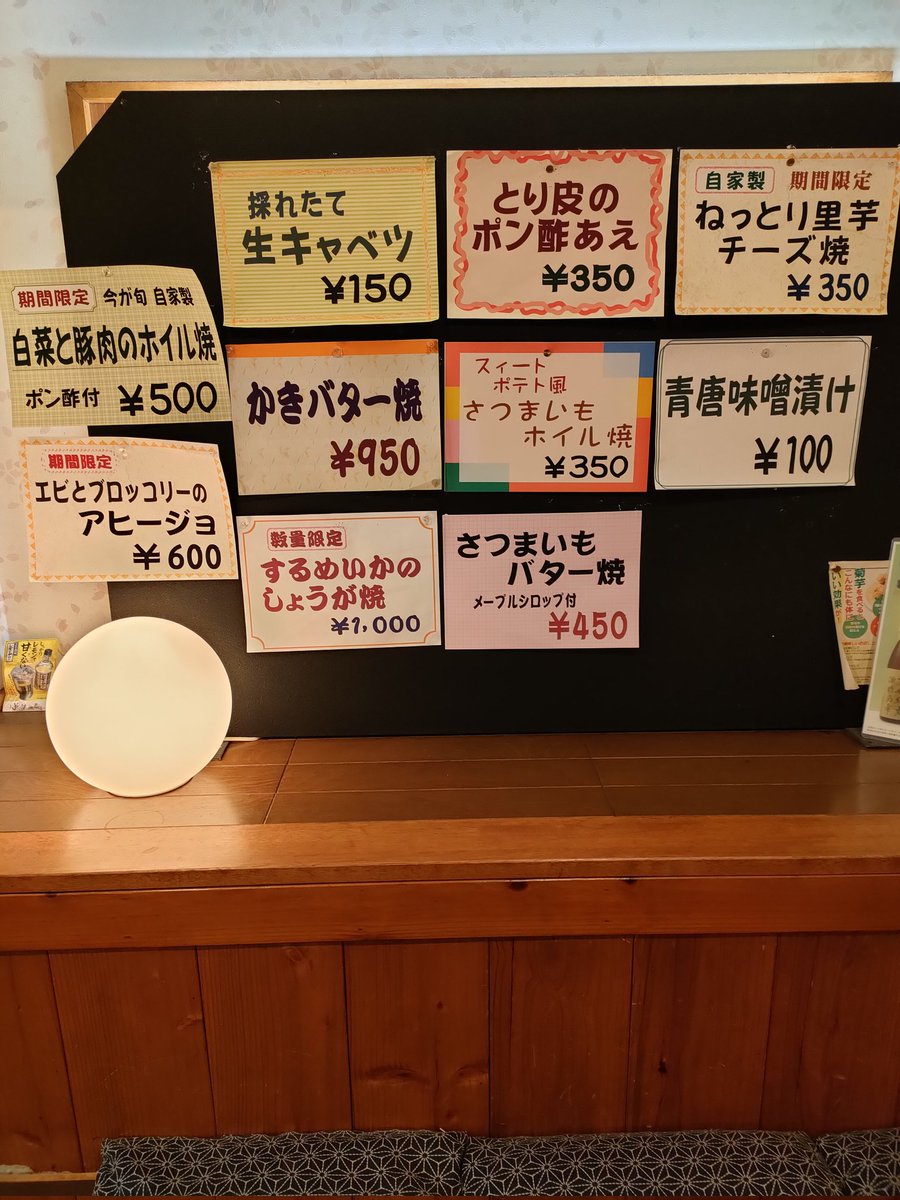 採れたて
生キャベツ
¥150
とり皮の
ポン酢あえ
¥350
自家製 期間限定
ねっとり里芋
チーズ焼
¥350
期間限定 今が旬 自家製
白菜と豚肉のホイル焼
ポン酢付 ¥500
かきバター焼
¥950
スィート
ポテト風
さつまいも
ホイル焼
¥350
青唐味噌漬け
¥100
期間限定
エビとブロッコリーの
アヒージョ
¥600
数量限定
するめいかの
しょうが焼
¥1,000
さつまいも
バター焼
メープルシロップ付
¥450
菊芋を食べると
こんなにも体に
いい効果が!
レモンサワー
甘くない